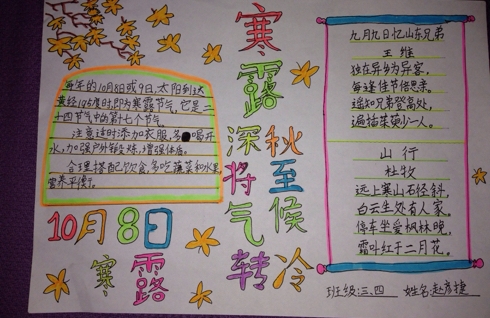 每年的10月8日或9日,太阳到达
黄经195度时,即为寒露节气,它是二
十四节气中的第十七个节气
注意适时添加衣服,多喝开
水,加强户外锻炼,增强体质。
合理搭配饮食,多吃蔬菜和水果,
营养平衡。
10月8日
寒露
寒露
深秋
将至
气候
转冷
九月九日忆山东兄弟
王维
独在异乡为异客,
每逢佳节倍思亲。
遥知兄弟登高处,
遍插茱萸少一人。
山行
杜牧
远上寒山石径斜,
白云生处有人家。
停车坐爱枫林晚,
霜叶红于二月花。
班级:三、四 姓名:赵彦捷